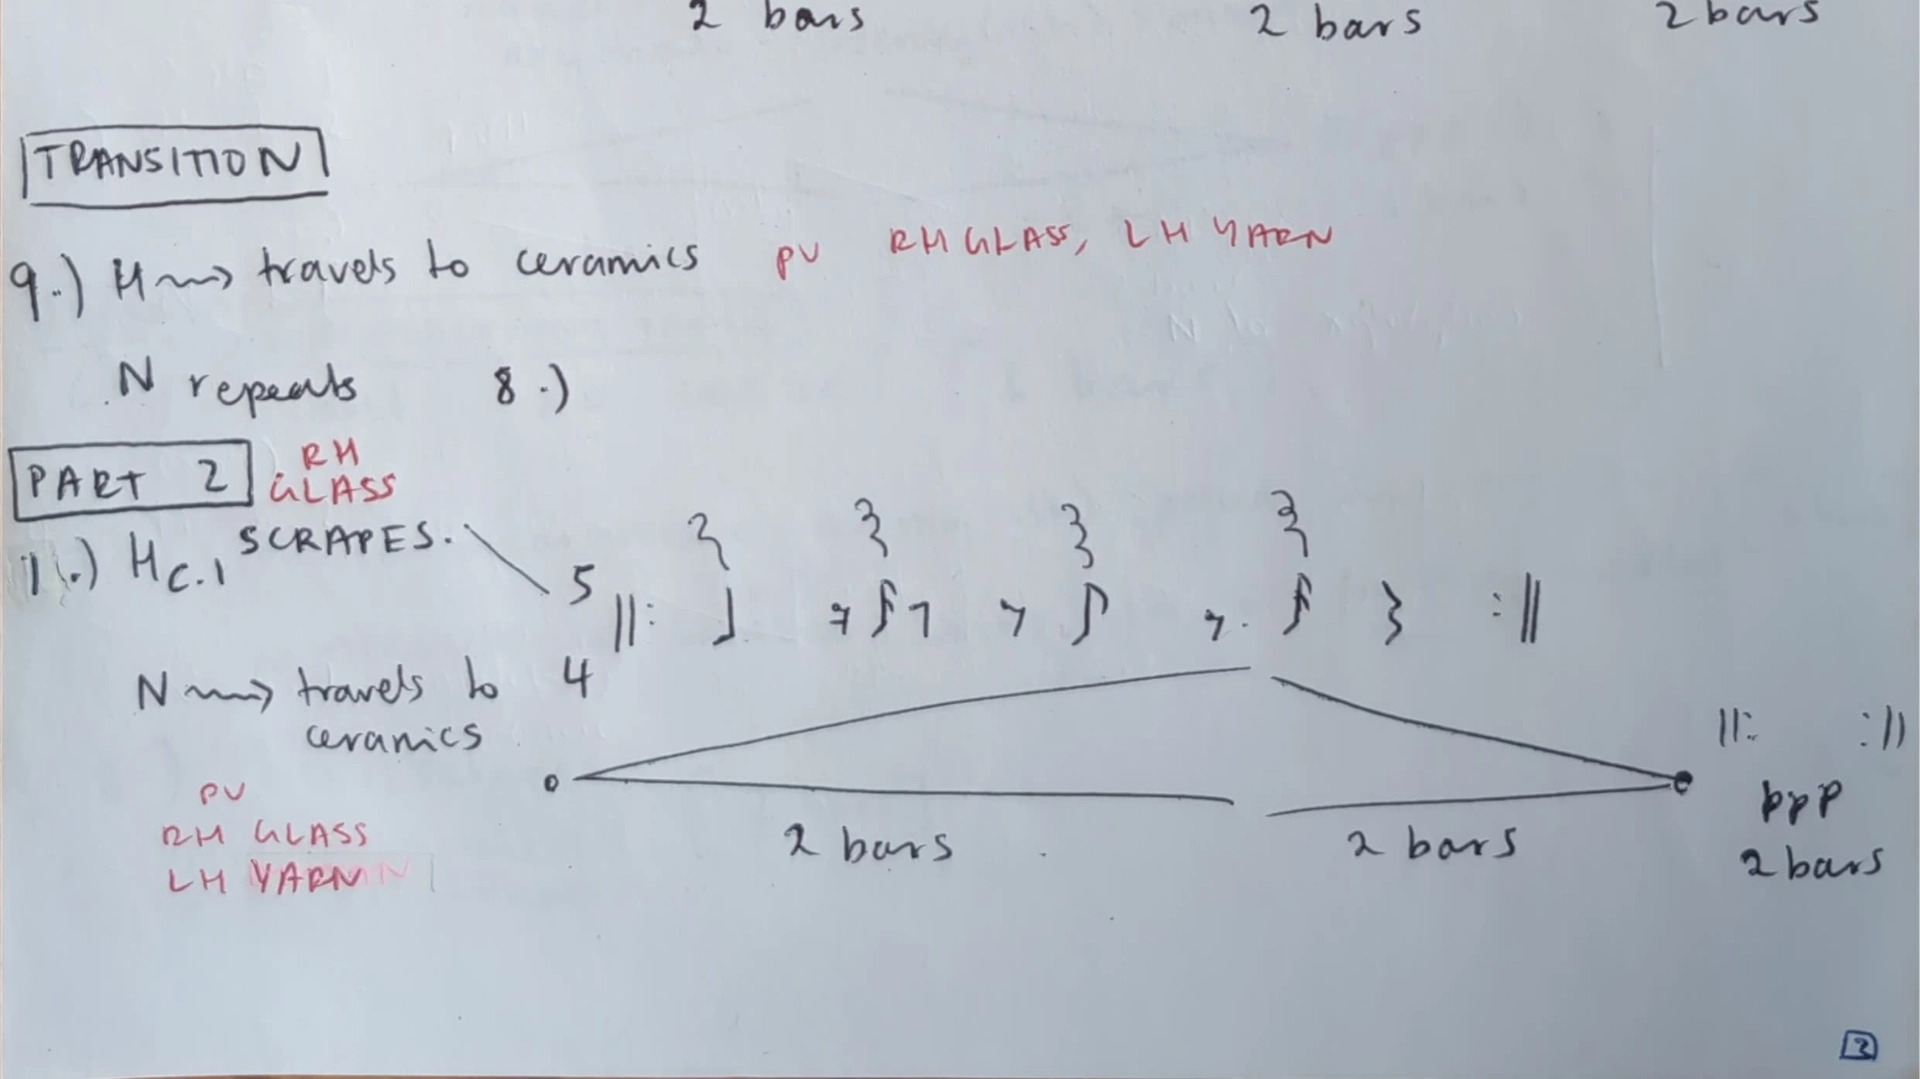 2 bars 2 bars 2 bars
TRANSITION
9.) H travels to ceramics pv RH GLASS, LH YARN
N repeats 8.)
PART 2 RH
GLASS
1.) Hc.1 SCRAPES.
5
4
N travels to
ceramics
pv
RH GLASS
LH YARN
o
2 bars 2 bars
ppp
2 bars